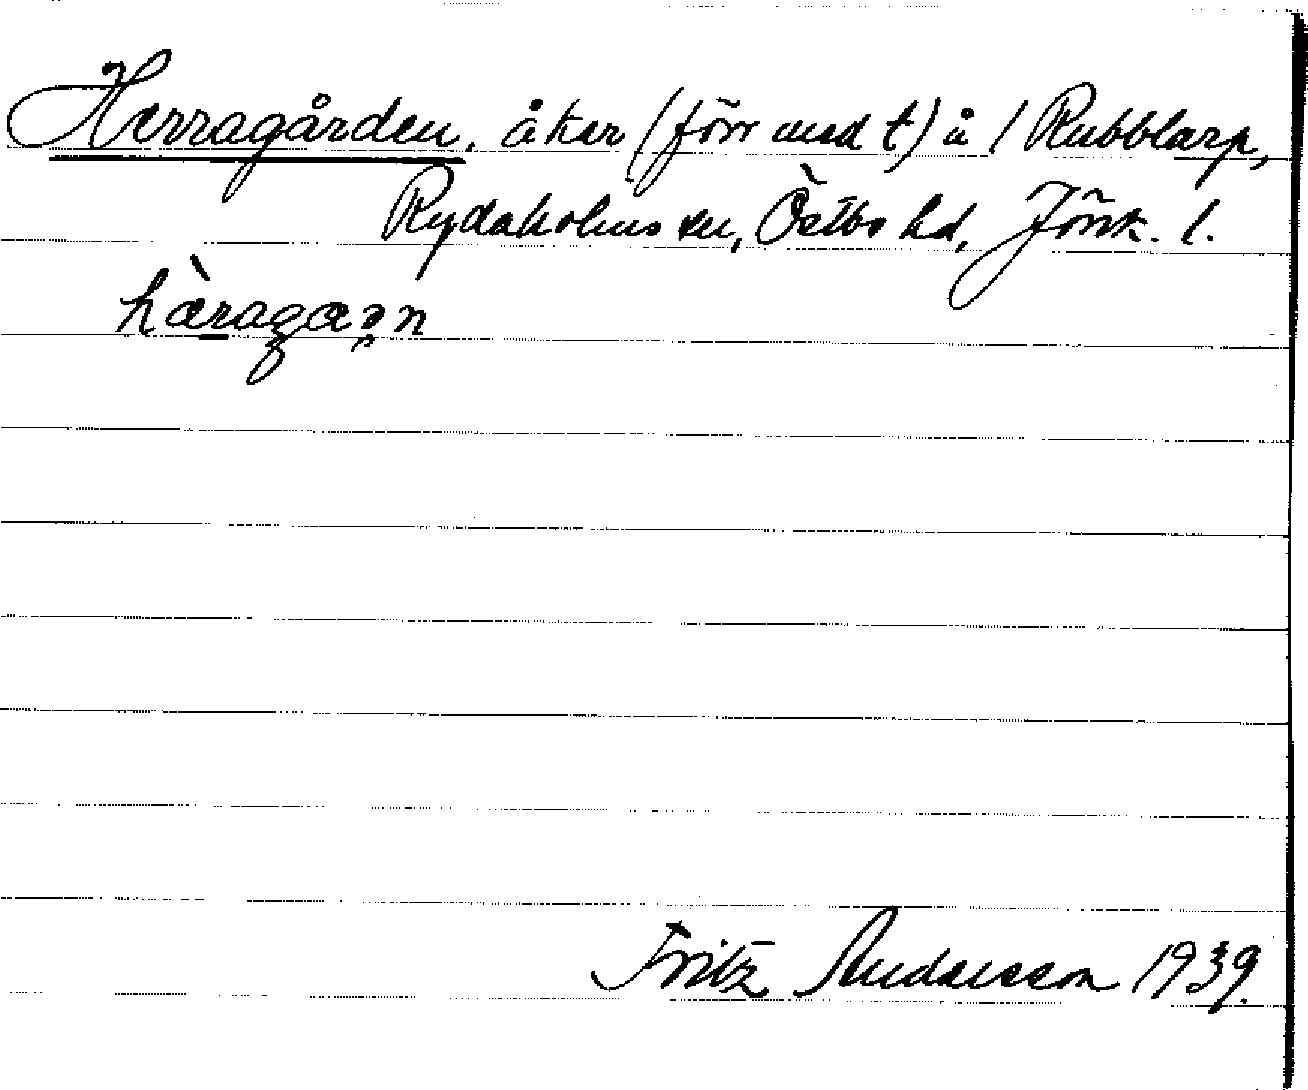 Herragården, åker (förr med t) å / Rubblarp,
Rydaholms sn, Östbo hd, Jönk. l.
hæ̀ragæən
Fritz Andersson 1939.